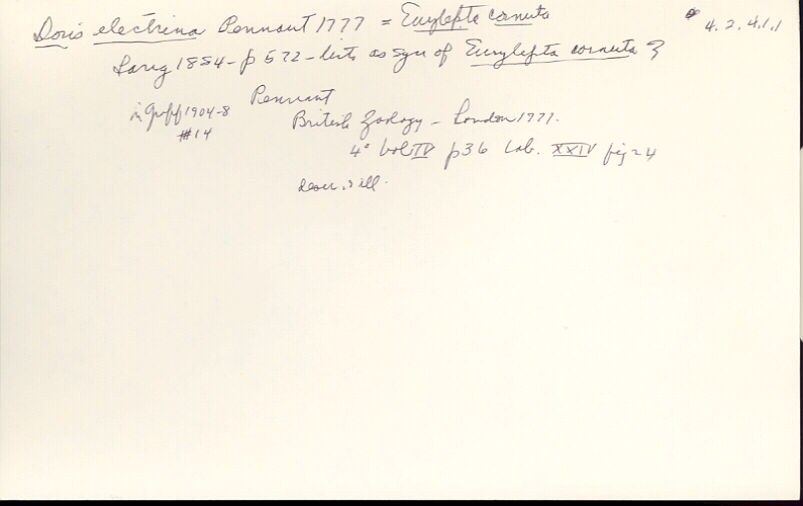 Doris electrina Pennant 1777 = Eurylepta cornuta
4.2.4.1.1
Lang 1884 - p 572 - lists as syn of Eurylepta cornuta ?
Pennant
in Graff 1904-8
#14
British Zoology - London 1777.
4° Vol IV p36 tab. XXIV fig 24
descr. & ill.